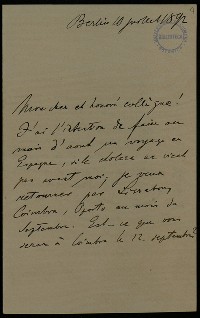 Berlin 10 juillet 1892
Mon cher et honoré collègue!
J'ai l'intention de faire au
mois d'août un voyage en
Espagne, si le cholera ne vient
pas avant moi, je veux
retourner par Lissabon,
Coimbra, Oporto au mois de
Septembre. Est-ce que vous
serez à Coimbra le 12 septembre